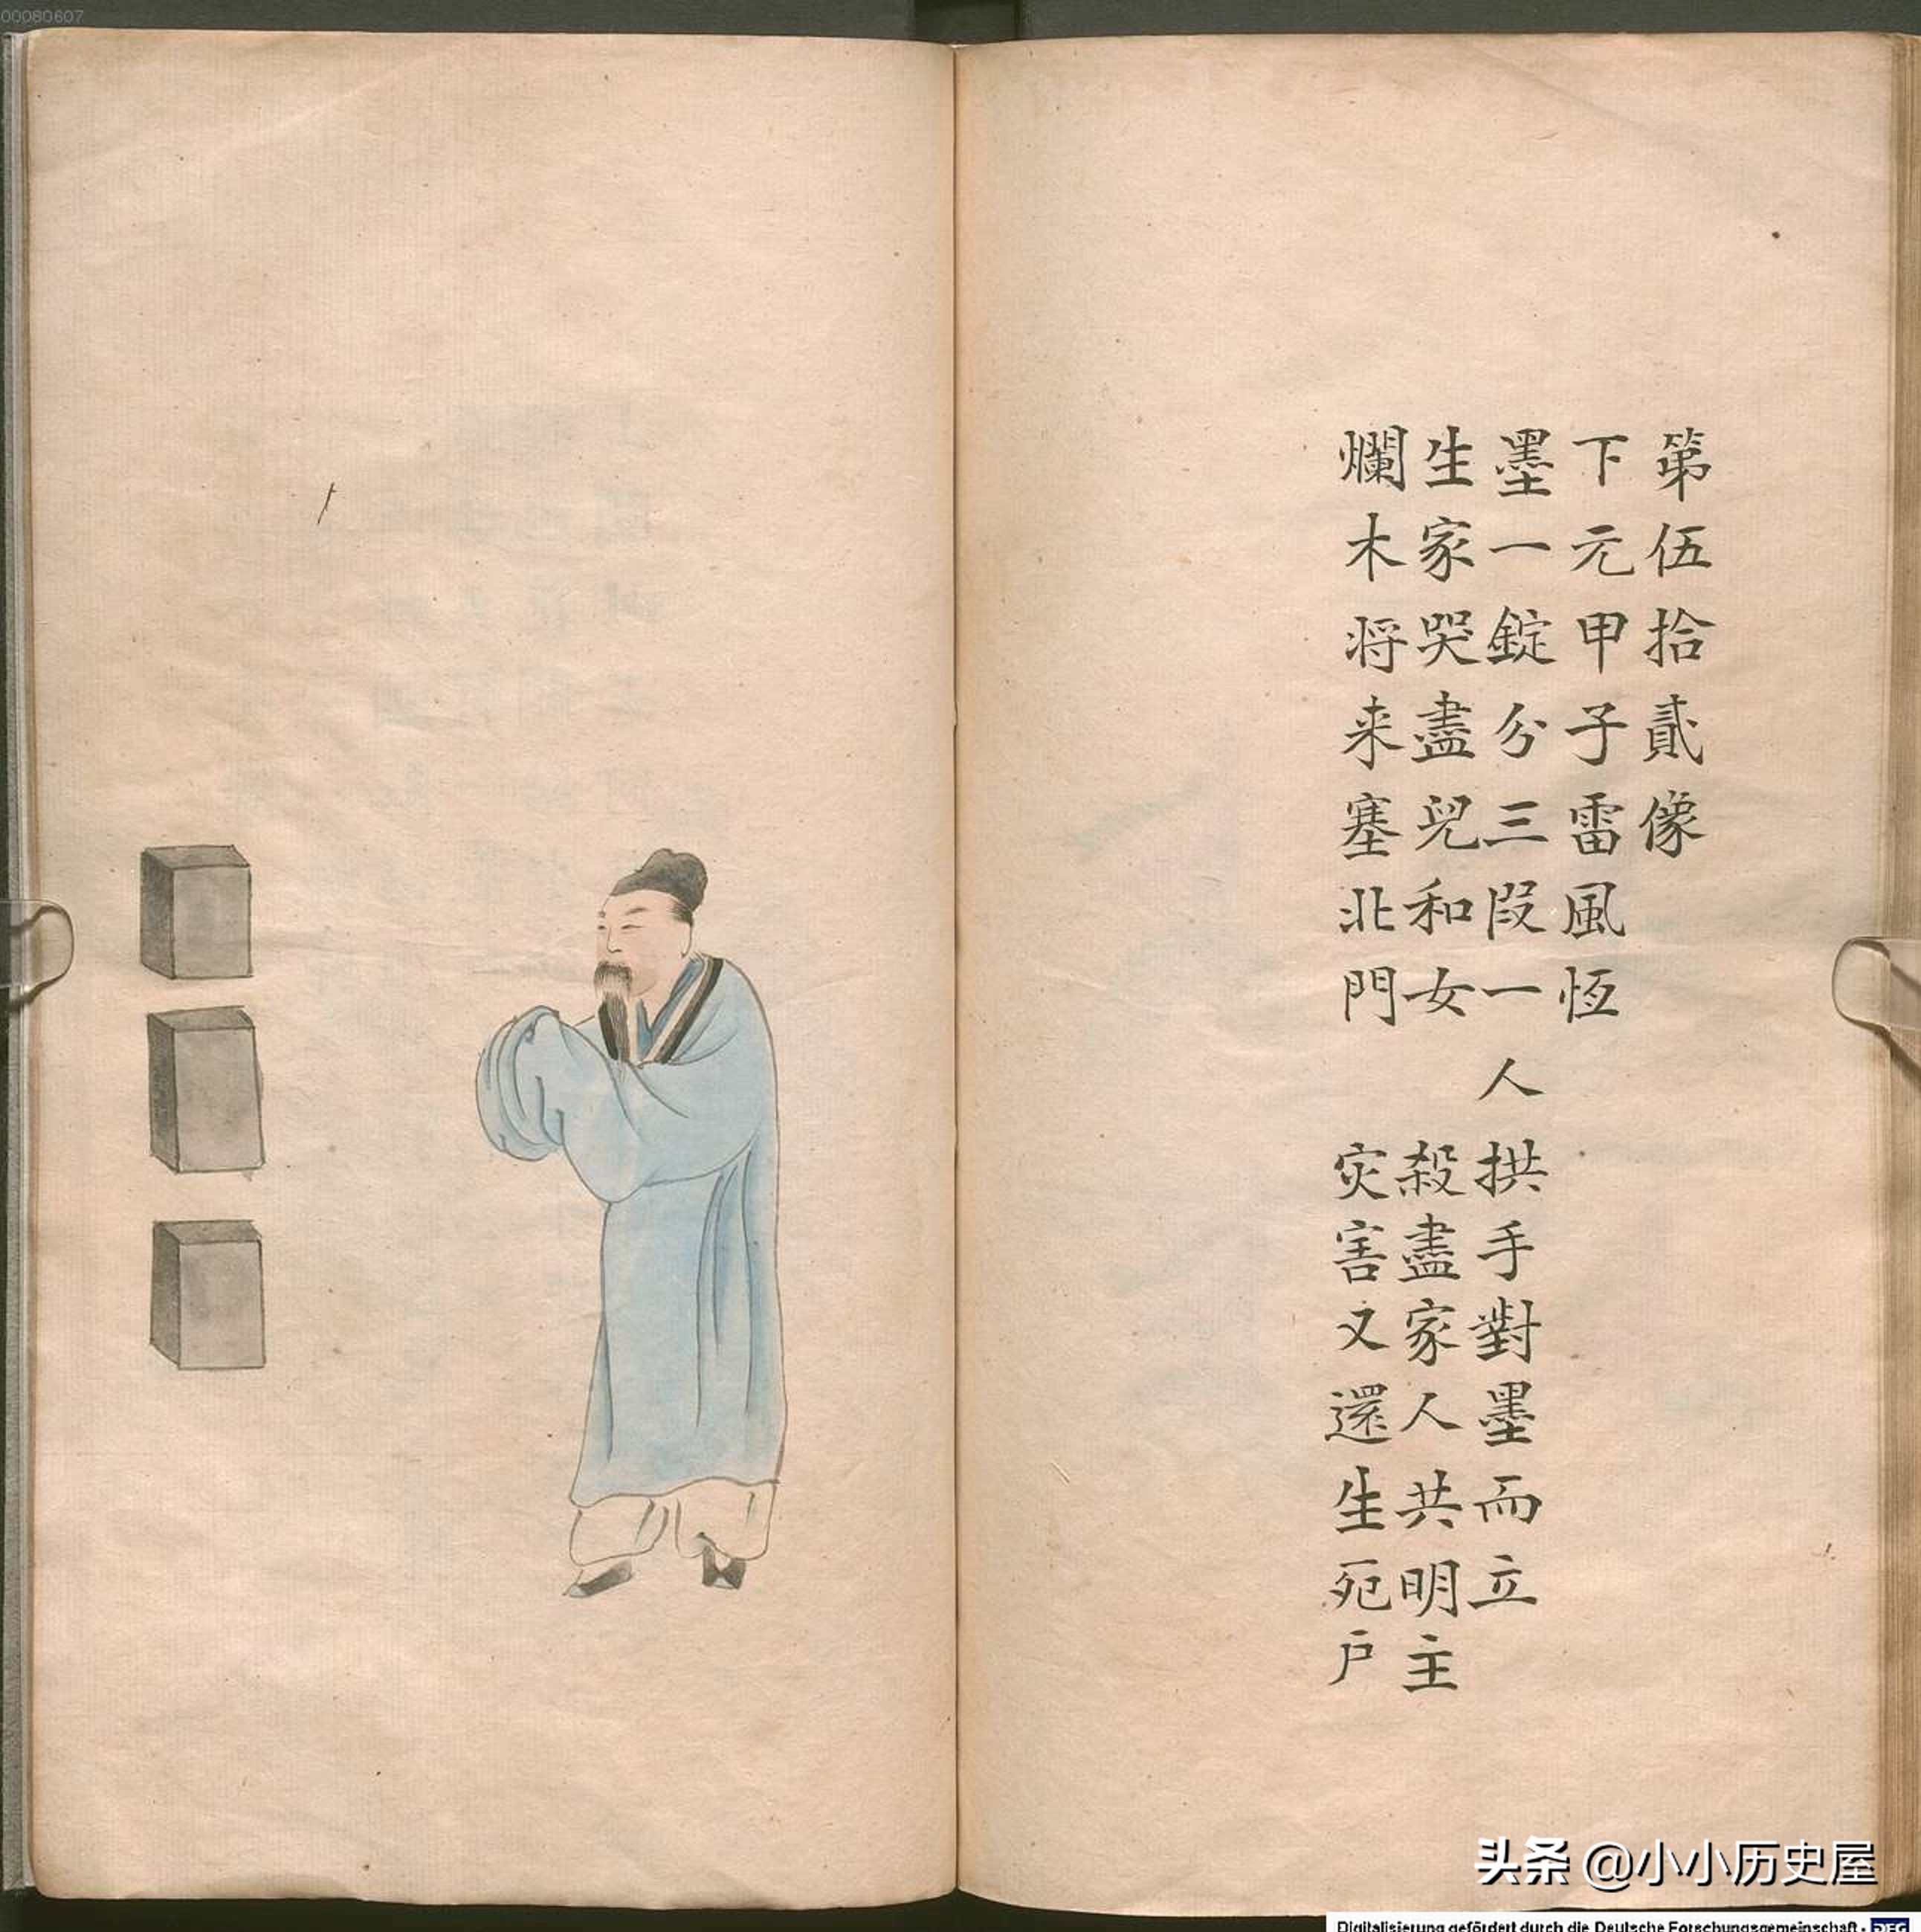 00080607
第伍拾貳像
下元甲子雷風恆
墨一錠分三段一人拱手對墨而立
生家哭盡兒和女 殺盡家人共明主
爛木将来塞北門 灾害又還生死戶
头条 @小小历史屋
Digitalisierung gefördert durch die Deutsche Forschungsgemeinschaft - DFG